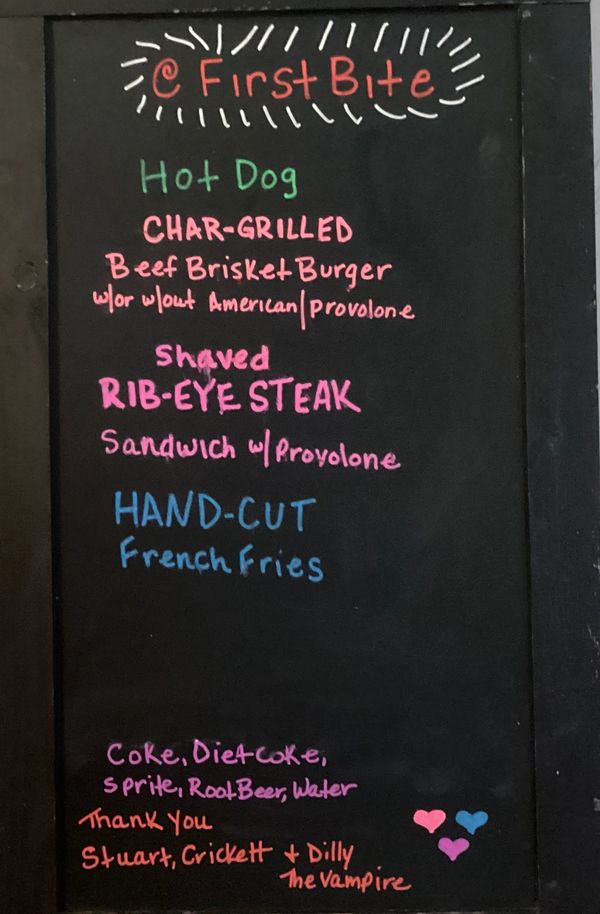 @ First Bite
Hot Dog
CHAR-GRILLED
Beef Brisket Burger
w/or w/out American/Provolone
Shaved
RIB-EYE STEAK
Sandwich w/Provolone
HAND-CUT
French Fries
Coke, Diet Coke,
Sprite, Root Beer, Water
Thank You
Stuart, Crickett + Dilly
The Vampire